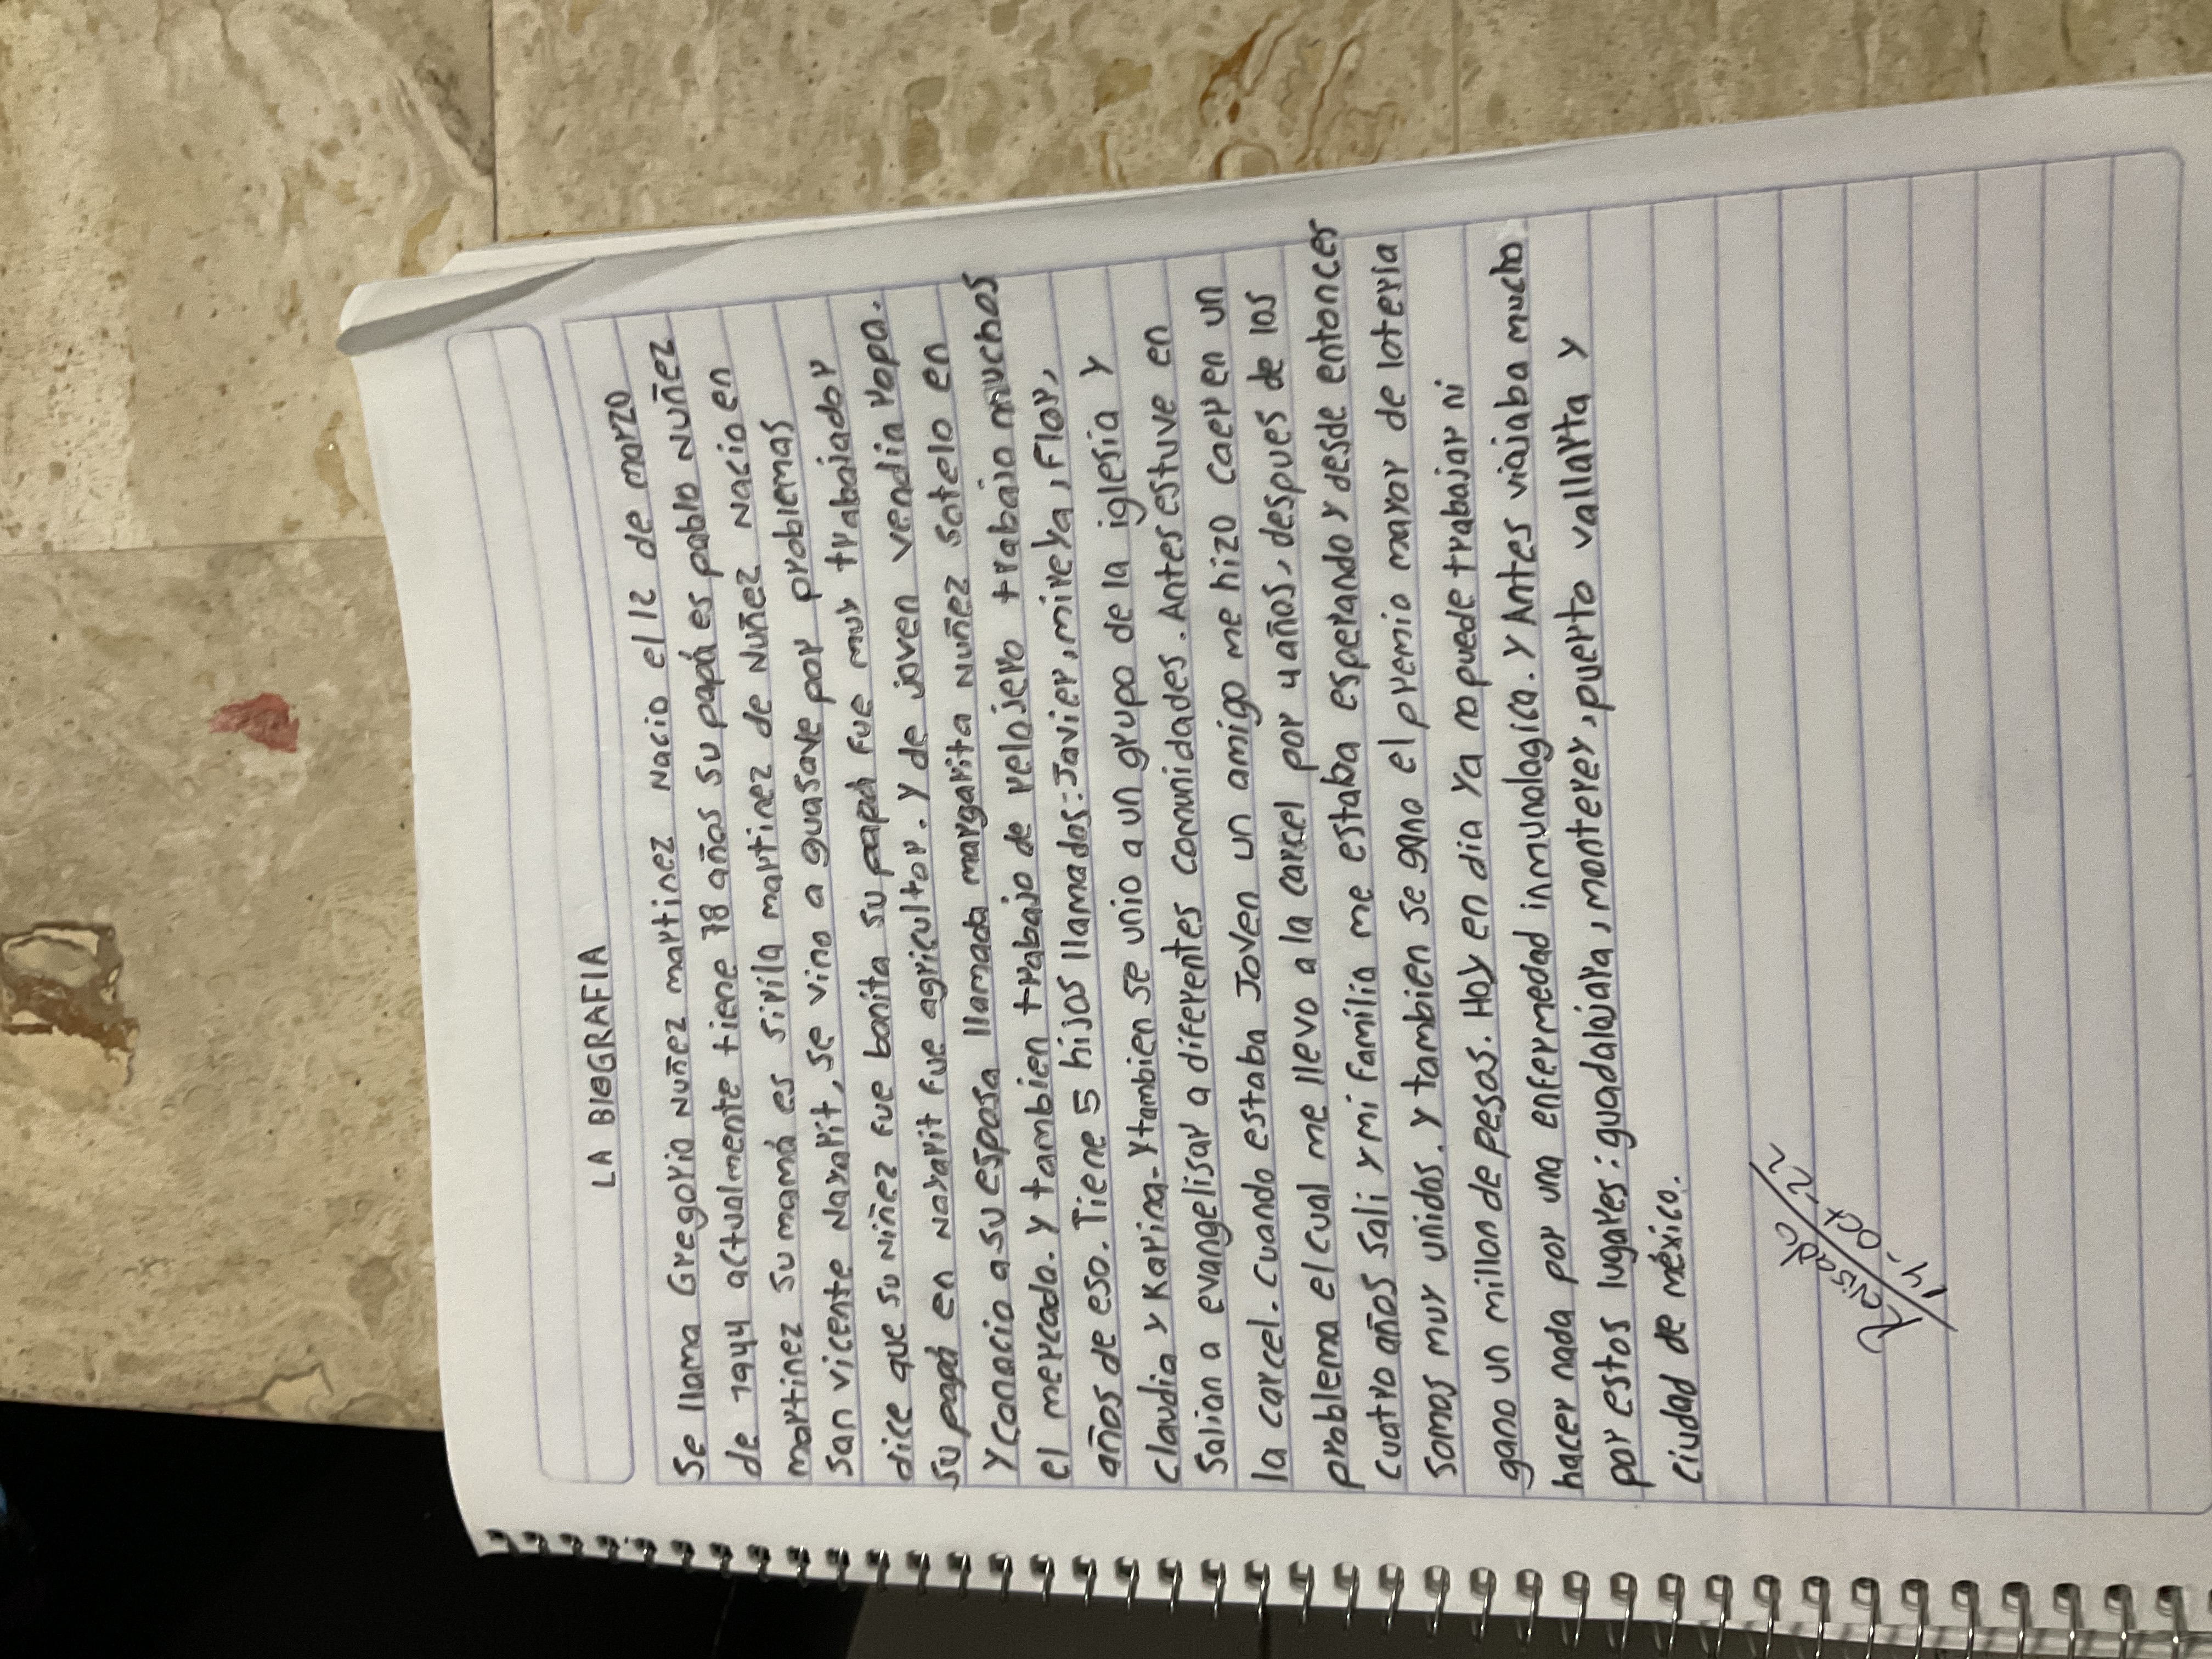 LA BIOGRAFIA
Se llama Gregorio Nuñez martinez Nacio el 12 de marzo
de 1944 actualmente tiene 78 años su papá es pablo Nuñez
martinez su mamá es sirila martinez de Nuñez Nacio en
san vicente Nayarit, se vino a guasave por problemas
dice que su niñez fue bonita su papá fue muy trabajador
su papá en Nayarit fue agricultor. y de joven vendia ropa.
y conocio a su esposa llamada margarita Nuñez sotelo en
el mercado. y tambien trabajo de relojero trabajo muchos
años de eso. Tiene 5 hijos llamados: Javier, mireya, Flor,
claudia y Karina. y tambien se unio a un grupo de la iglesia y
salian a evangelisar a diferentes comunidades. Antes estuve en
la carcel. cuando estaba Joven un amigo me hizo caer en un
problema el cual me llevo a la carcel por 4 años, despues de los
cuatro años sali y mi familia me estaba esperando y desde entonces
somos muy unidos. y tambien se gano el premio mayor de loteria
gano un millon de pesos. Hoy en dia ya no puede trabajar ni
hacer nada por una enfermedad inmunologica. y Antes viajaba mucho
por estos lugares: guadalajara, monterey, puerto vallarta y
ciudad de méxico.
Revisado